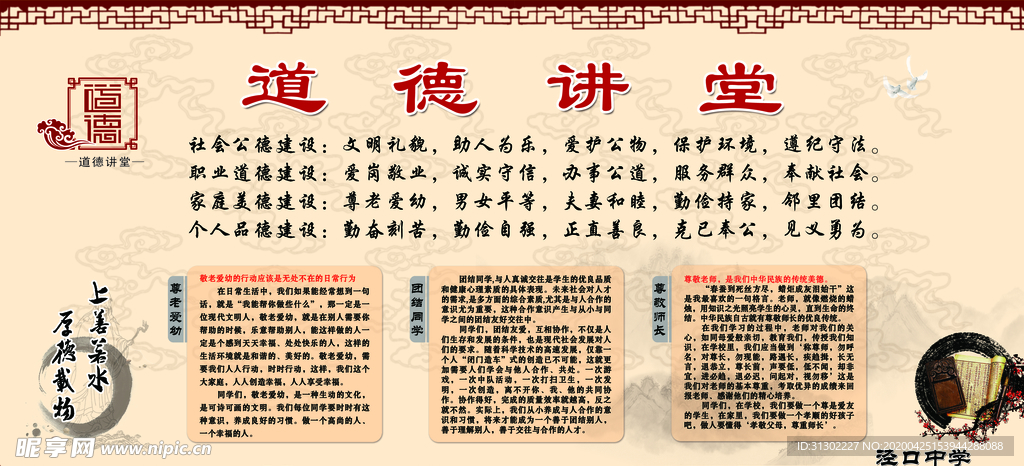 道德讲堂
道德
道德讲堂
社会公德建设：文明礼貌，助人为乐，爱护公物，保护环境，遵纪守法。
职业道德建设：爱岗敬业，诚实守信，办事公道，服务群众，奉献社会。
家庭美德建设：尊老爱幼，男女平等，夫妻和睦，勤俭持家，邻里团结。
个人品德建设：勤奋刻苦，勤俭自强，正直善良，克己奉公，见义勇为。
上善若水
厚德载物
尊老爱幼
敬老爱幼的行动应该是无处不在的日常行为
在日常生活中，我们如果能经常想到一句
话，就是“我能帮你做些什么”，那一定是一
位现代文明人，敬老爱幼，就是在别人需要你
帮助的时候，乐意帮助别人，能这样做的人一
定是个感到天天幸福、处处快乐的人，这样的
生活环境就是和谐的、美好的。敬老爱幼，需
要我们人人行动，时时行动，这样，我们这个
大家庭，人人创造幸福，人人享受幸福。
同学们，敬老爱幼，是一种生动的文化，
是可诗可画的文明。我们每位同学要时时有这
种意识，养成良好的习惯。做一个高尚的人、
一个幸福的人。
团结同学
团结同学,与人真诚交往是学生的优良品质
和健康心理素质的具体表现。未来社会对人才
的需求,是多方面的综合素质,尤其是与人合作的
意识尤为重要，这种合作意识产生与从小与同
学之间的团结友好交往中。
同学们，团结友爱，互相协作，不仅是人
们生存和发展的条件，也是现代社会发展对人
们的要求。随着科学技术的高速发展，仅靠一
个人“闭门造车”式的创造已不可能，这就更
加需要人们学会与他人合作、共处。一次游
戏，一次中队活动，一次打扫卫生，一次发
明，一次创造，离不开你、我、他的共同协
作。协作得好，完成的质量效率就越高，反之
就不然。实际上，我们从小养成与人合作的意
识和习惯，将来才能成为一个善于团结别人，
善于理解别人，善于交往与合作的人才。
尊敬师长
尊敬老师，是我们中华民族的传统美德。
“春蚕到死丝方尽，蜡炬成灰泪始干”这
是我最喜欢的一句格言。老师，就像燃烧的蜡
烛，用知识之光照亮学生的心灵，直到生命的终
结。中华民族自古就有尊敬师长的优良传统。
在我们学习的过程中，老师对我们的关
心，如同母爱般亲切，教育我们，传授我们知
识，在学校里，我们应当做到“称尊师，勿呼
名，对尊长，勿现能，路遇长，疾趋揖，长无
言，退恭立，尊长前，声要低，低不闻，却非
宜，进必趋，退必迟，问起对，视勿移”这是
我们对老师的基本尊重，考取优异的成绩来回
报老师，感谢他们的精心培养。
同学们，在学校，我们要做一个尊是爱友
的学生，在家里，我们要做一个孝顺的好孩子
吧，做人要懂得‘孝敬父母，尊重师长’。
泾口中学
昵享网 www.nipic.cn
ID:31302227 NO:20200425153944288088